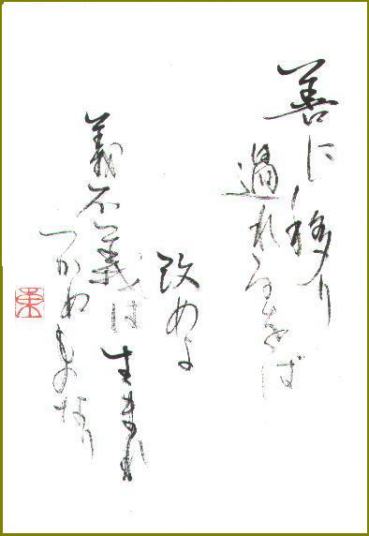 善に移り
過れるをば
改めよ
義不義は
生まれ
つかぬものなり
東